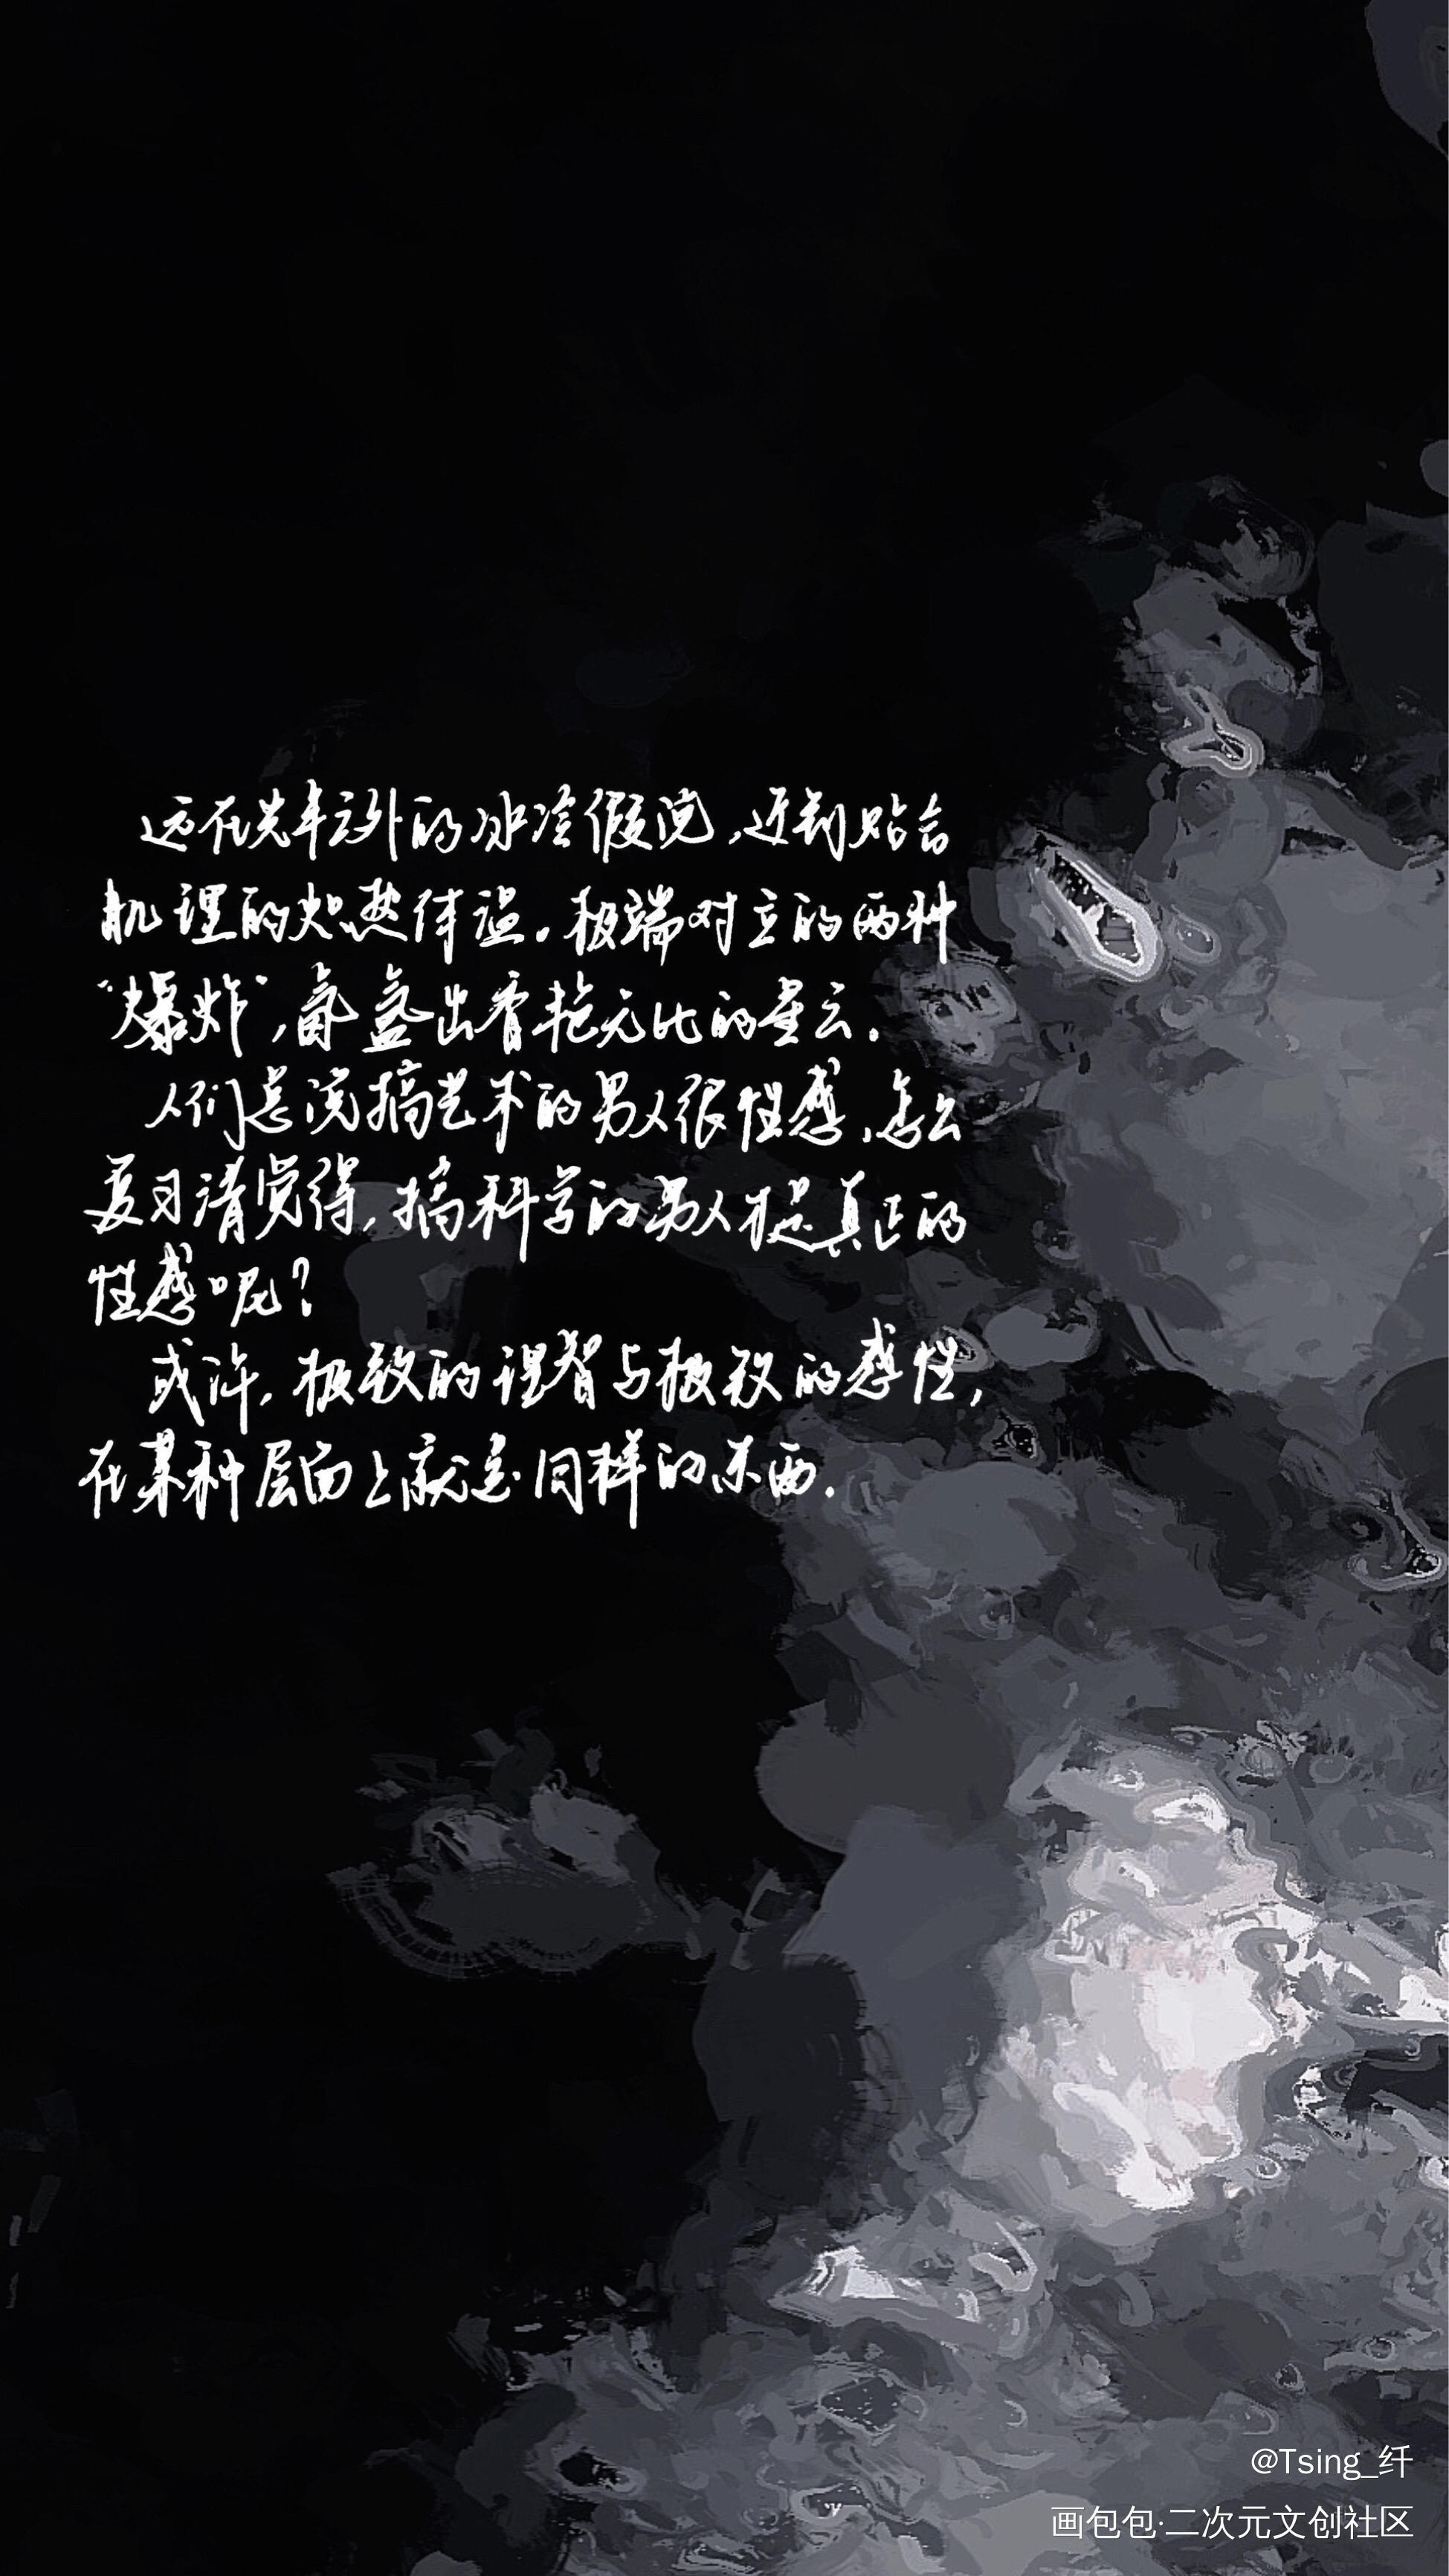 远在光年之外的冰冷假说,近到贴合
肌理的炽热体温。极端对立的两种
“爆炸”,氤氲出香艳无比的星云.
人们总说搞艺术的男人很性感,怎么
夏习清觉得,搞科学的男人才是真正的
性感呢?
或许,极致的理智与极致的感性,
在某种层面上就是同样的东西.
@Tsing_纤
画包包·二次元文创社区